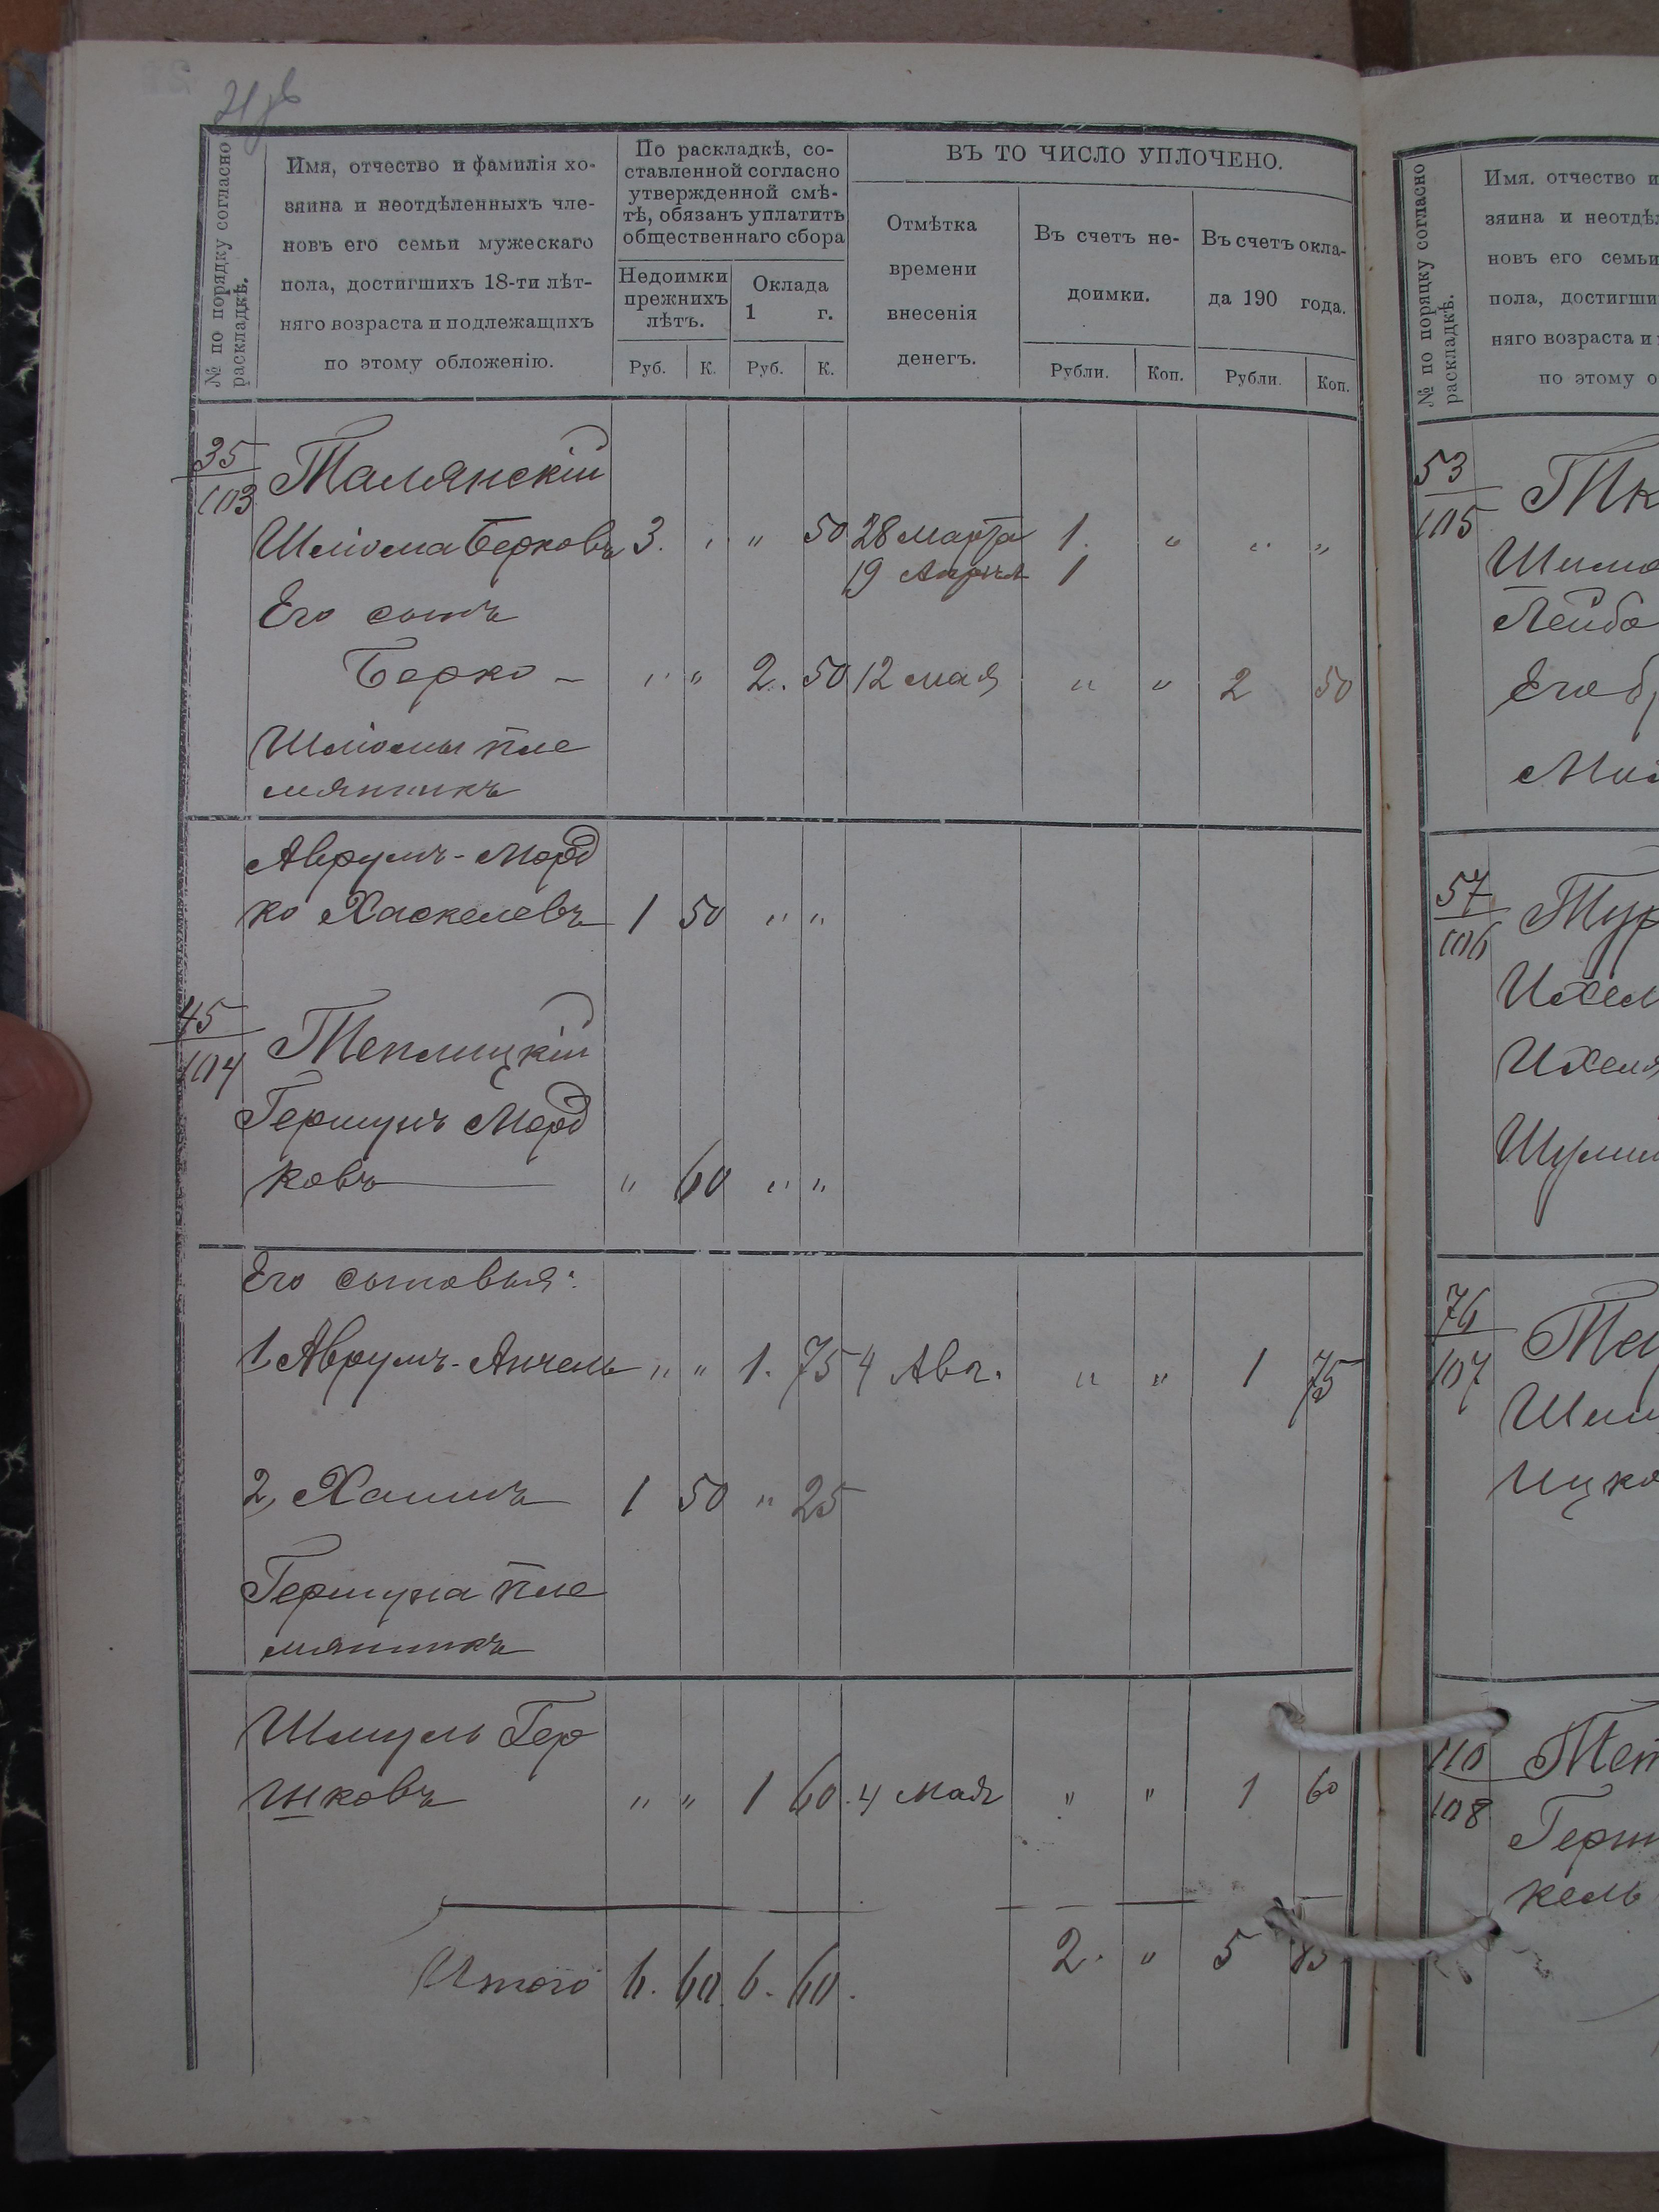 № по порядку согласно раскладкѣ.
Имя, отчество и фамилія хо-
зяина и неотдѣленныхъ чле-
новъ его семьи мужескаго
пола, достигшихъ 18-ти лѣт-
няго возраста и подлежащихъ
по этому обложенію.
По раскладкѣ, со-
ставленной согласно
утвержденной смѣ-
тѣ, обязанъ уплатить
общественнаго сбора
Недоимки
прежнихъ
лѣтъ.
Оклада
1 г.
Руб. К. Руб. К.
ВЪ ТО ЧИСЛО УПЛОЧЕНО.
Отмѣтка
времени
внесенія
денегъ.
Въ счетъ не-
доимки.
Въ счетъ окла-
да 190 года.
Рубли. Коп. Рубли. Коп.
35
103
Талянскій
Шліома Берковъ 3. " " 50 28 марта 1. " " "
19 Апрѣля 1
Его сынъ
Берко - " " 2. 50 12 мая " " 2 50
Шліомы пле
мянникъ
Аврумъ-Морд
ко Хаскелевъ 1 50 " "
45
104
Теплицкій
Гершунъ Морд
ковъ " 60 " "
Его сыновья:
1, Аврумъ-Анчель " " 1. 75 4 Авг. " " 1 75
2, Хаимъ 1 50 " 25
Гершуна пле
мянникъ
Шмуль Гер
шковъ " " 1 60. 4 мая " " 1 60
Итого 6. 60. 6. 60. 2. " 5 85
№ по порядку согласно раскладкѣ.
Имя, отчество и
зяина и неотдѣл
новъ его семьи
пола, достигши
няго возраста и
по этому о
53
105
Тк
Шимо
Лейбо
Его б
57
106
Тур
Ихел
Ихеля
76
107
Ицко
110
108
Герш
кель